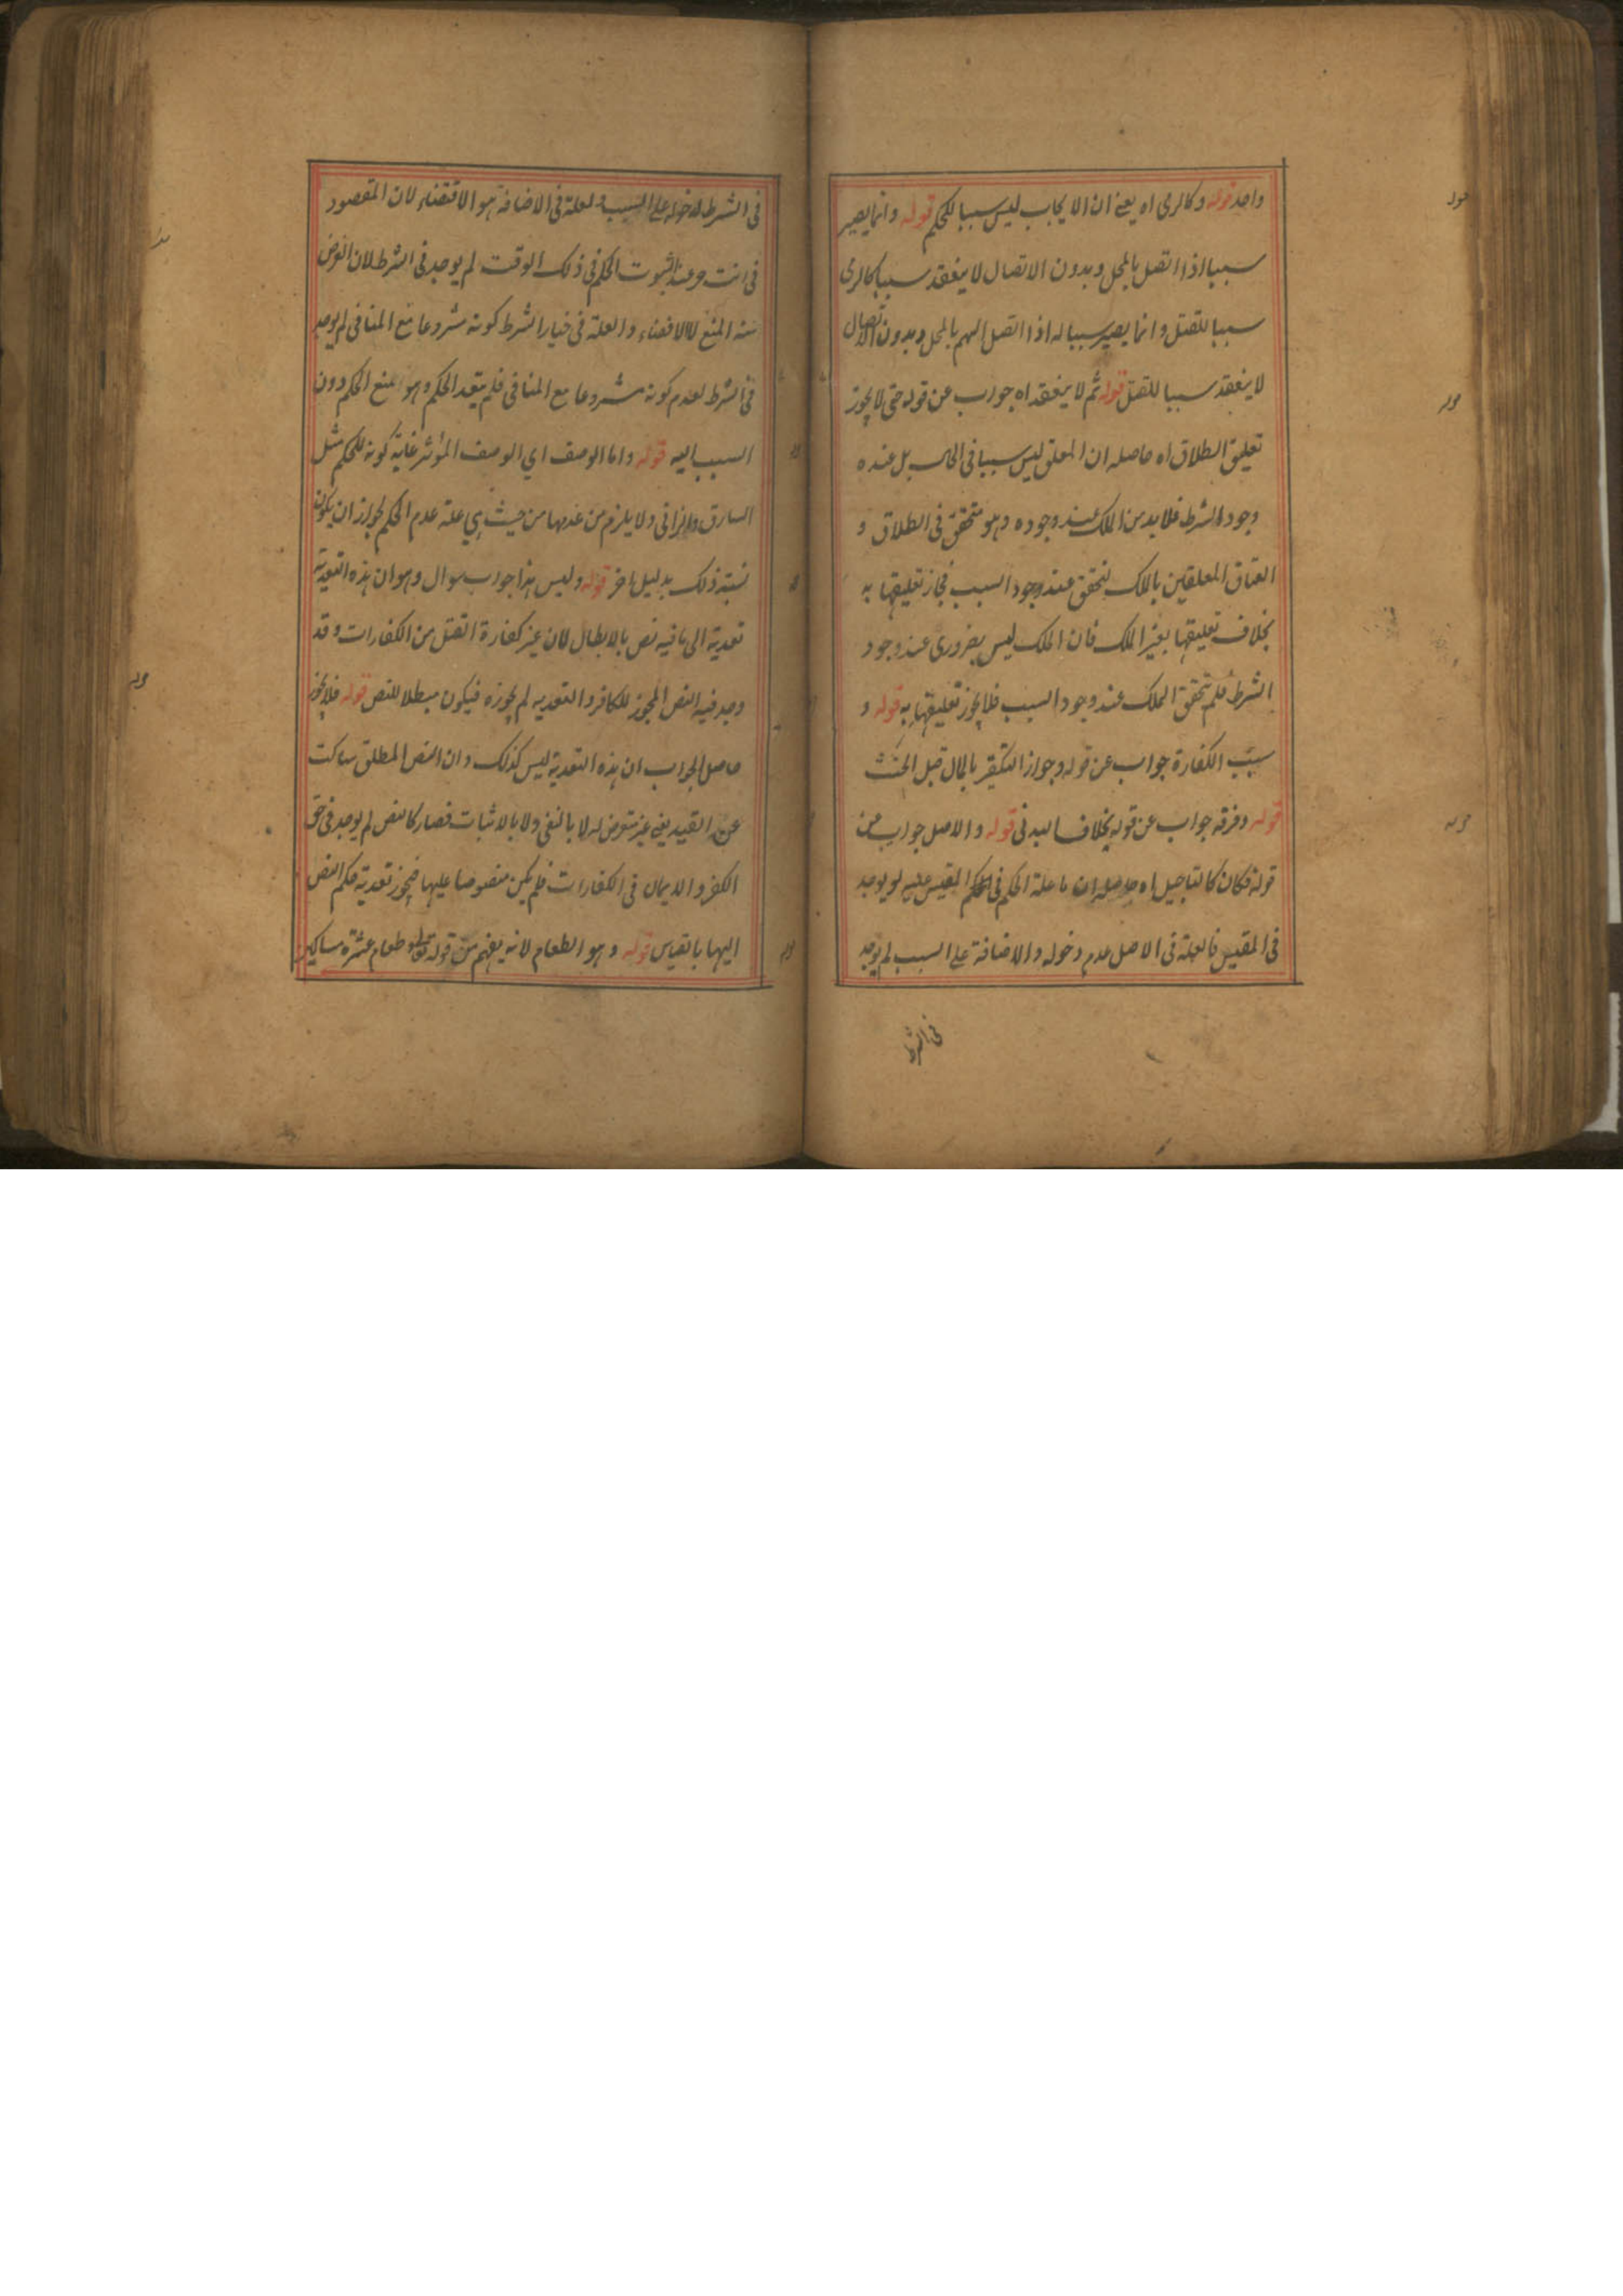 واحد قوله وكالرمى اه يعنے ان الايجاب ليس سببا للحكم قوله وانما يصير
سببا اذا اتصل بالمحل وبدون الاتصال لا ينعقد سببا كالرمى
سببا للقتل وانما يصير سببا له اذا اتصل السهم بالمحل وبدون الاتصال
لا ينعقد سببا للقتل قوله ثم لا ينعقد اه جواب عن قوله حتى لا يجوز
تعليق الطلاق اه حاصله ان المعلق ليس سببا فى الحال بل عنده
وجود الشرط فلا بد من الملك عند وجوده وهو متحقق فى الطلاق و
العتاق المعلقين بالملك لتحقق عند وجود السبب فجاز تعليقها به
بخلاف تعليقها بغير الملك فان الملك ليس بضرورى عند وجود
الشرط فلم يتحقق الملك عند وجود السبب فلا يجوز تعليقها به قوله و
سبب الكفارة جواب عن قوله وجواز التكفير بالمال قبل الحنث
قوله وفرقه جواب عن قوله بخلاف البدنى قوله والاصل جواب عن
قوله فكان كالتاجيل اه حاصله ان ما علة الحكم فى المقيس عليه لو يوجد
فى المقيس فالعلة فى الاصل عدم دخوله والاضافة على السبب لم يوجد
فى الشرط
فى الشرط لدخوله على السبب والعلة فى الاضافة هو الاقتضاء لان المقصود
فى انت حر غدا ثبوت الحكم فى ذلك الوقت لم يوجد فى الشرط لان الغرض
منه المنع لا الاقضاء والعلة فى خيار الشرط كونه مشروعا مع المنافى لم يوجد
فى الشرط لعدم كونه مشروعا مع المنافى فلم يتعد الحكم وهو منع الحكم دون
السبب اليه قوله واما الوصف اي الوصف المؤثر غاية كونه للحكم مثل
السارق والزانى ولا يلزم من عدمها من حيث هي علة عدم الحكم لجواز ان يكون
نسبة ذلك بدليل اخر قوله وليس هذا جواب سوال وهو ان هذه التعدية
تعدية الى ما فيه نص بالابطال لان غير كفارة القتل من الكفارات وقد
وجد فيه النص المجوز للكافر والتعديه لم يجوزه فيكون مبطلا للنص قوله فلا يجوز
حاصل الجواب ان هذه التعدية ليس كذلك وان النص المطلق ساكت
عن القيد يعنى غير متعرض له لا بالنفى ولا بالاثبات فصار كالنص لم يوجد فى حق
الكفر والايمان فى الكفارات فلم يكن منصوصا عليها فيجوز تعدية حكم النص
اليها بالقياس قوله وهو الطعام لانه يفهم من قوله تعالى طعام عشرة مساكين